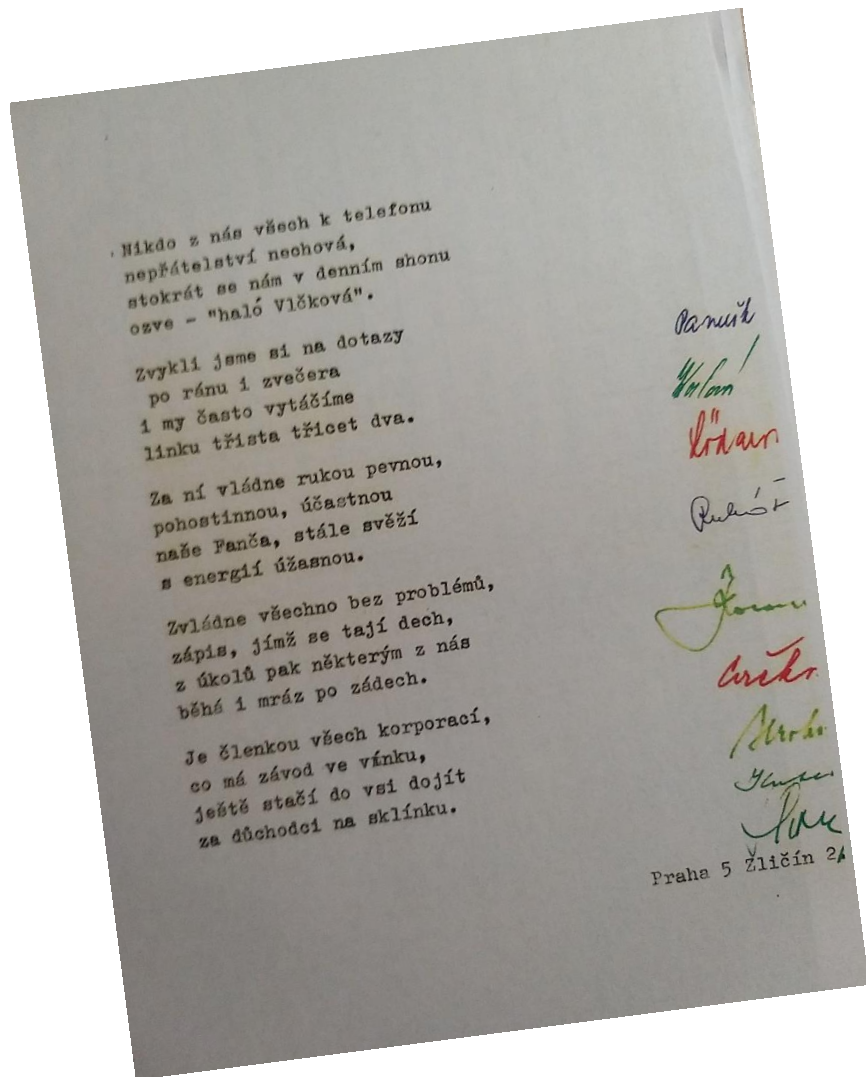 Nikdo z nás všech k telefonu
nepřátelství nechová,
stokrát se nám v denním shonu
ozve - "haló Vlčková".
Zvykli jsme si na dotazy
po ránu i zvečera
i my často vytáčíme
linku třista třicet dva.
Za ní vládne rukou pevnou,
pohostinnou, účastnou
naše Fanča, stále svěží
s energií úžasnou.
Zvládne všechno bez problémů,
zápis, jímž se tají dech,
z úkolů pak některým z nás
běhá i mráz po zádech.
Je členkou všech korporací,
co má závod ve vínku,
ještě stačí do vsi dojít
za důchodci na sklínku.
Praha 5 Zličín